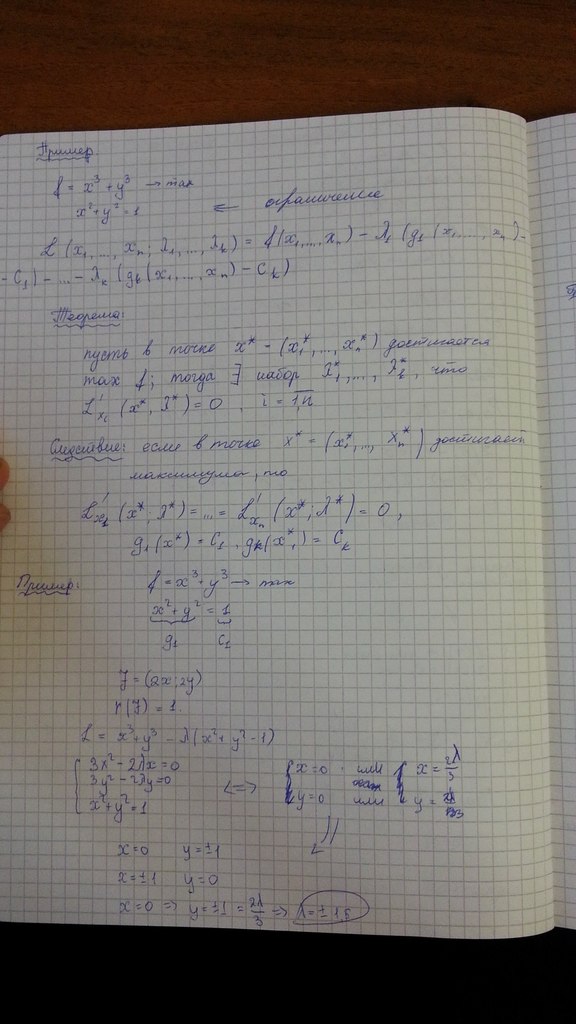 Пример
f = x³ + y³ → max
x² + y² = 1 ⇐ ограничение
L (x₁, ..., xₙ; λ₁, ..., λₖ) = f(x₁, ..., xₙ) - λ₁ (g₁ (x₁, ..., xₙ) -
- C₁) - ... - λₖ (gₖ(x₁, ..., xₙ) - Cₖ)
Теорема:
пусть в точке x* - (x₁*, ..., xₙ*) достигается
max f; тогда ∃ набор λ₁*, ..., λₖ*, что
L'xᵢ (x*, λ*) = 0, i = 1,n
Следствие: если в точке x* = (x₁*, ..., xₙ*) достигает
максимума, то
L'x₁ (x*, λ*) = ... = L'xₙ (x*; λ*) = 0,
g₁(x*) = C₁, gₖ(x*) = Cₖ
Пример: f = x³ + y³ → max
x² + y² = 1
g₁ C₁
J = (2x; 2y)
r(J) = 1.
L = x³ + y³ - λ(x² + y² - 1)
3x² - 2λx = 0
3y² - 2λy = 0
x² + y² = 1
<=> x = 0 или x = 2λ/3
y = 0 или y =
x = 0 y = ±1
x = ±1 y = 0
x = 0 => y = ±1 = 2λ/3 => λ = ±1,5